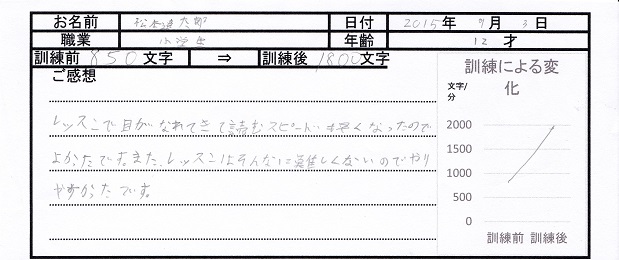 お名前 松本遼太郎 日付 2015年 7月 3日
職業 小学生 年齢 12才
訓練前 850文字 ⇒ 訓練後 1800文字
ご感想
レッスンで目がなれてきて読むスピードも早くなったので
よかったです。また、レッスンはそんなに難しくないのでやり
やすかったです。
訓練による変
化
文字/
分
2000
1500
1000
500
0
訓練前 訓練後